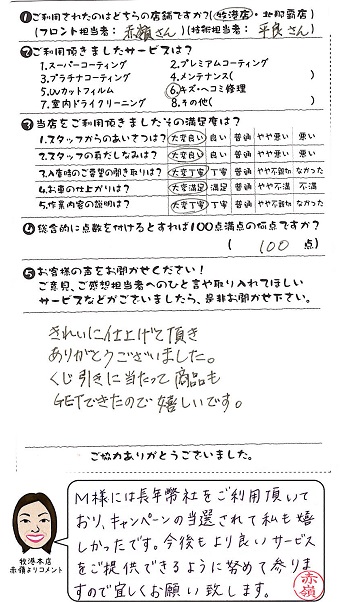 ❶ご利用されたのはどちらの店舗ですか?(牧港店・北那覇店)
(フロント担当者: 赤嶺さん)(技術担当者: 平良さん)
❷ご利用頂きましたサービスは?
1.スーパーコーティング 2.プレミアムコーティング
3.プラチナコーティング 4.メンテナンス( )
5.UVカットフィルム 6.キズ・ヘコミ修理
7.室内ドライクリーニング 8.その他( )
❸当店をご利用頂きましたその満足度は?
1.スタッフからのあいさつは? 大変良い 良い 普通 やや悪い 悪い
2.スタッフの身だしなみは? 大変良い 良い 普通 やや悪い 悪い
3.入庫時のご要望の聞き取りは? 大変丁寧 丁寧 普通 やや不親切 なかった
4.お車の仕上がりは? 大変満足 満足 普通 やや不満 不満
5.作業内容の説明は? 大変丁寧 丁寧 普通 やや不親切 なかった
❹総合的に点数を付けるとすれば100点満点の何点ですか?
( 100 点)
❺お客様の声をお聞かせください!
ご意見、ご感想担当者へのひと言や取り入れてほしい
サービスなどがございましたら、是非お聞かせ下さい。
きれいに仕上げて頂き
ありがとうございました。
くじ引きに当たって商品も
GETできたので嬉しいです。
ご協力ありがとうございました。
M様には長年弊社をご利用頂いて
おり、キャンペーンの当選されて私も嬉
しかったです。今後もより良いサービス
をご提供できるように努めて参りま
すので宜しくお願い致します。
赤嶺
牧港本店
赤嶺よりコメント